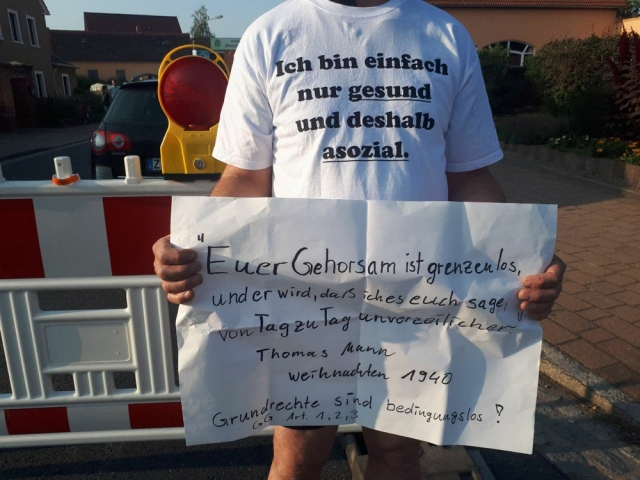 Ich bin einfach
nur gesund
und deshalb
asozial.
"Euer Gehorsam ist grenzenlos,
und er wird, daß ich es euch sage,
von Tag zu Tag unverzeilicher"
Thomas Mann
Weihnachten 1940
Grundrechte sind bedingungslos!
GG Art. 1, 2, 3